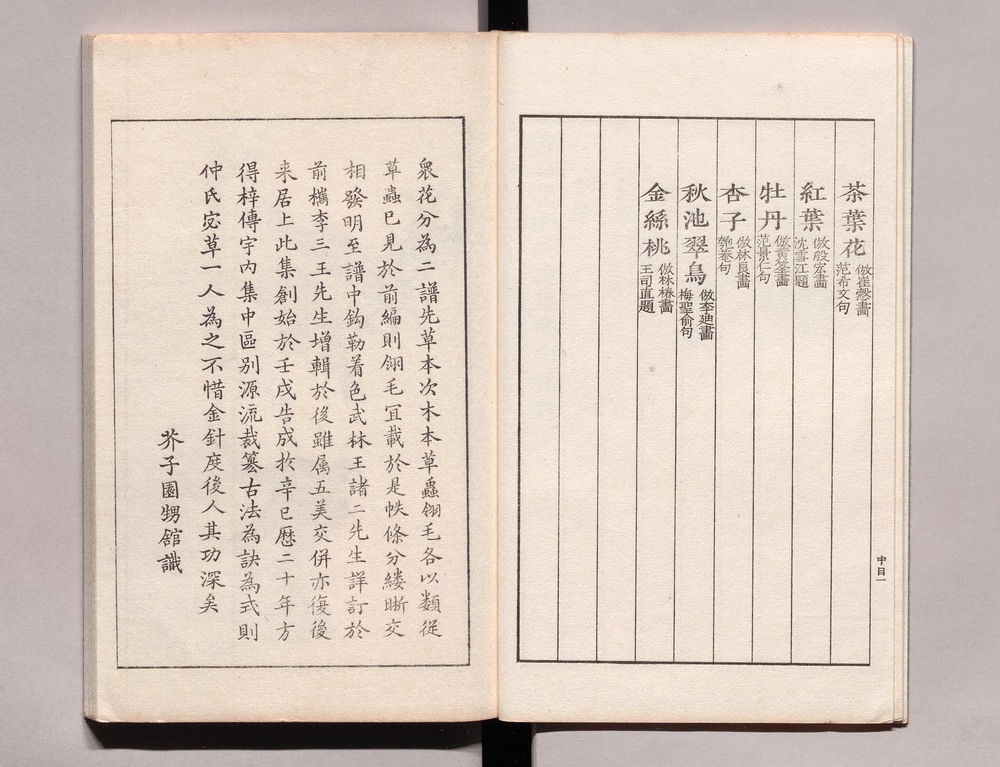 茶葉花 倣崔慤畫 范希文句
紅葉 倣殷宏畫 沈雪江題
牡丹 倣黃筌畫 范景仁句
杏子 倣林良畫 匏菴句
秋池翠鳥 倣李廸畫 梅聖俞句
金絲桃 倣林椿畫 王司直題
中目一
衆花分為二譜先草本次木本草蟲翎毛各以類從
草蟲已見於前編則翎毛冝載於是帙條分縷晰交
相發明至譜中鈎勒着色武林王諸二先生詳訂於
前檇李三王先生增輯於後雖属五美交併亦復後
来居上此集創始於壬戌告成扵辛巳歷二十年方
得梓傳宇内集中區別源流裁篡古法為訣為式則
仲氏宓草一人為之不惜金針度後人其功深矣
芥子園甥舘識